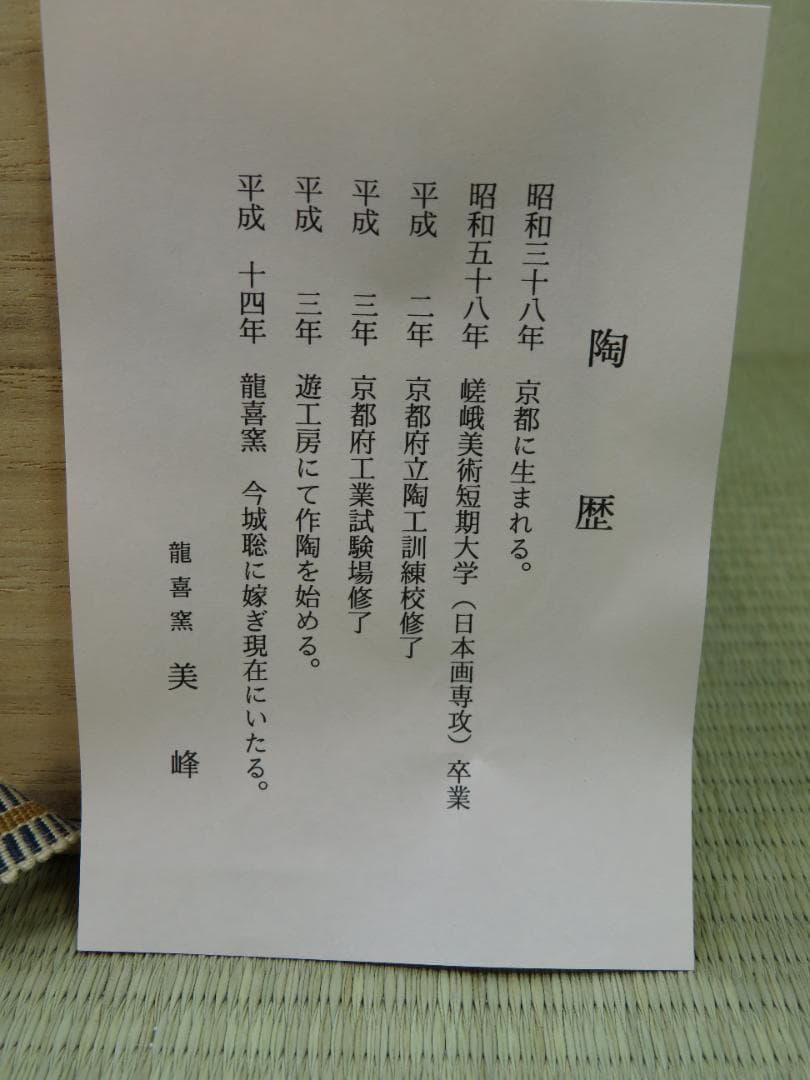 陶歴
昭和三十八年 京都に生まれる。
昭和五十八年 嵯峨美術短期大学（日本画専攻）卒業
平成 二年 京都府立陶工訓練校修了
平成 三年 京都府工業試験場修了
平成 三年 遊工房にて作陶を始める。
平成 十四年 龍喜窯 今城聡に嫁ぎ現在にいたる。
龍喜窯 美峰